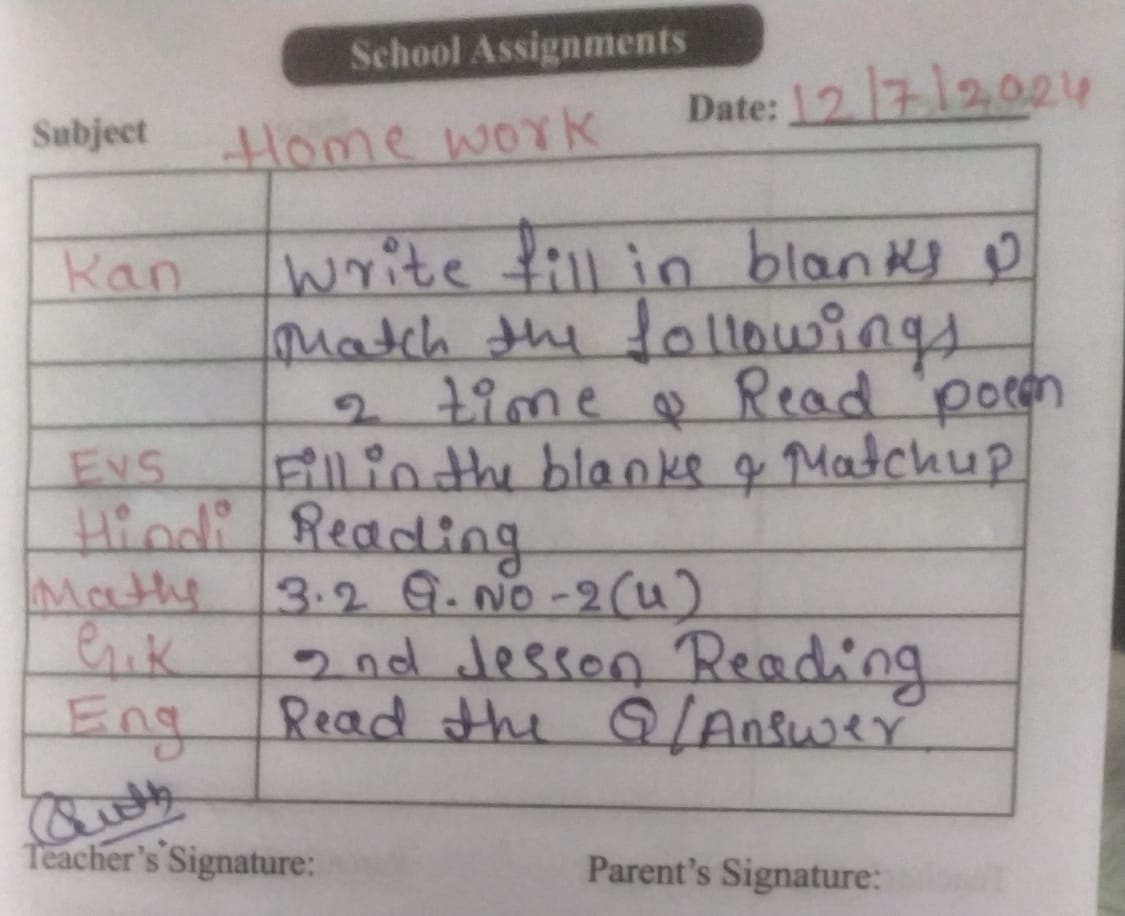 School Assignments
Subject Home work Date: 12/7/2024
Kan Write fill in blanks &
Match the followings
2 time & Read poem
EVS Fill in the blanks & Matchup
Hindi Reading
Maths 3.2 Q. No -2(4)
G.K 2nd lesson Reading
Eng Read the Q/Answer
Teacher's Signature: Parent's Signature: